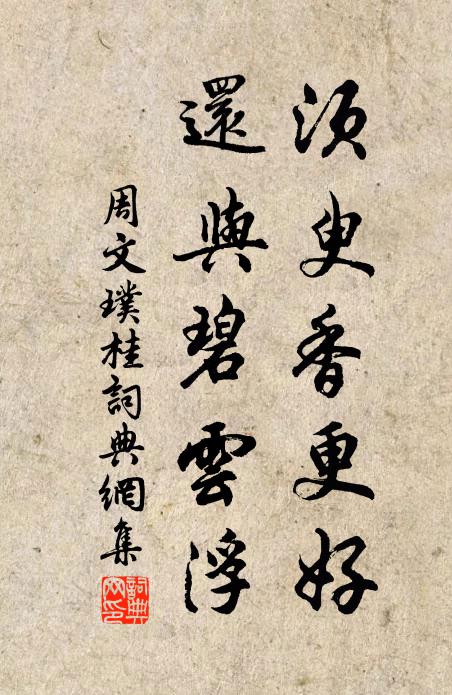 須臾香更好
還與碧雲浮
周文璞桂詞典網集
詞典
网印